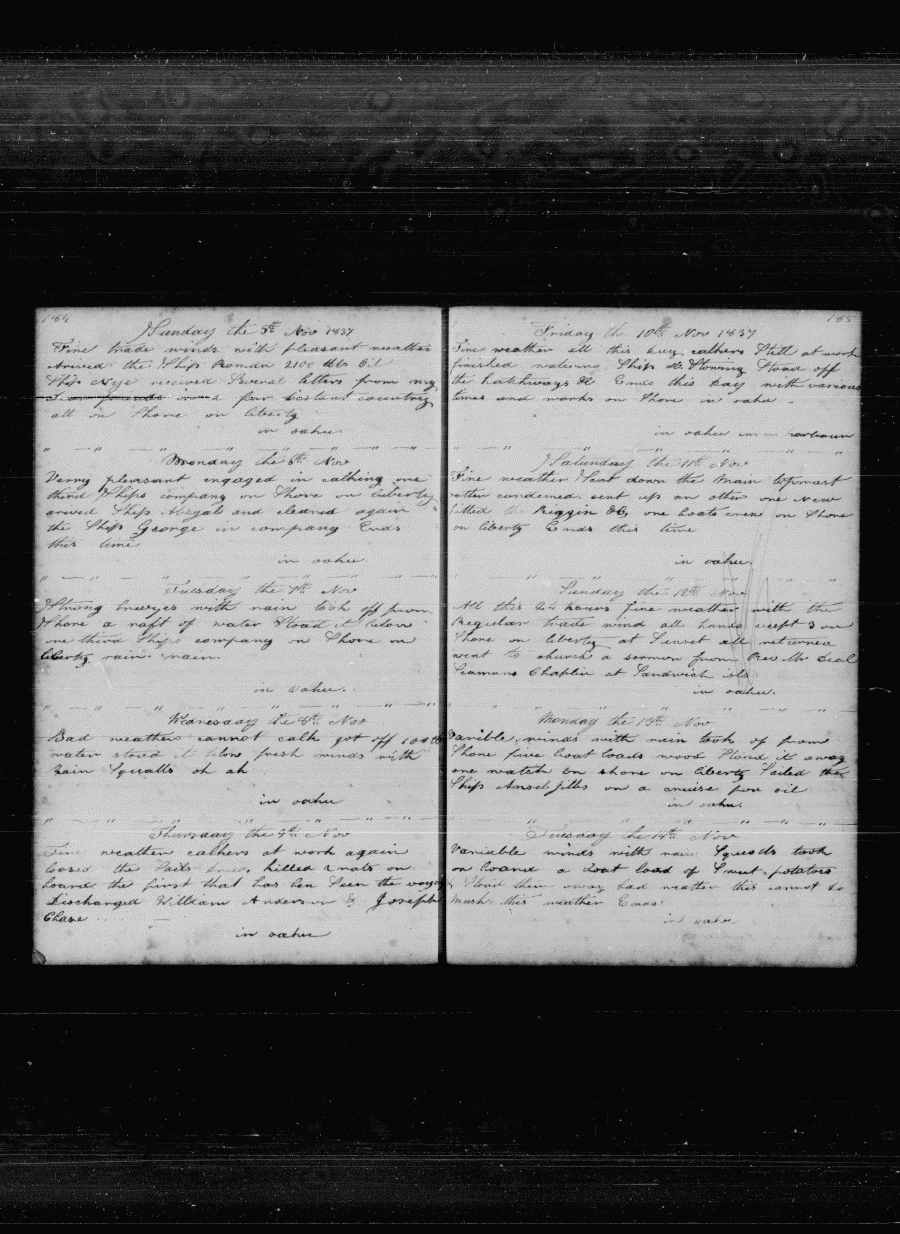 184
Sunday the 5th Nov 1837
Fine trade winds with pleasant weather
Arived the Ship Roman 2100 bbls Oil
Ship Nye received Several letters from my
a far distant country
all on Shore on liberty
in oahu.
Monday the 6th Nov
Verry pleasant engaged in calking one
third Ships company on Shore on liberty
arived Ship and cleared again
the Ship George in company Ends
this time
in oahu.
Tuesday the 7th Nov
Strong breezes with rain took off from
Shore a raft of water Stood it below
one third Ships company on Shore on
liberty rain rain.
in oahu.
Wednesday the 8th Nov
Bad weather cannot calk got off
water stood it below fresh winds with
rain Squalls oh ah
in oahu
Thursday the 9th Nov
Fine weather calkers at work again
loosed the Sails killed 2 rats on
board the first that has ben Seen the voyage
Discharged William Anderson & Joseph
Chase
in oahu
185
Friday the 10th Nov 1837
Fine weather all this day calkers Still at work
finished watering Ship & Stowing Stowed off
the hatchways &c Ends this Day with various
times and works on Shore in oahu
in oahu harbour
Saturday the 11th Nov
Fine weather Sent down the main topmast
other condemed. sent up an other one New
fitted the Riggin &c, one boats crew on Shore
on liberty Ends this time
in oahu.
Sunday the 12th Nov
All this 24 hours fine weather with the
Regular trade wind all hands except 3 on
Shore on liberty at Sunset all returned
went to church a sermon from Rev Mr Deal
Seamans Chaplin at Sandwich isls
in oahu.
Monday the 13th Nov
Varible, winds with rain took of from
Shore five boat loads wood Stowd it away
one watch on shore on liberty Sailed the
Ship Ansel Gibbs on a cruise for oil
in oahu.
Tuesday the 14th Nov
Variable winds with rain Squalls took
on board a boat load of Sweet potatoes
Stowd them away bad weather this cannot do
much this weather Ends
in oahu